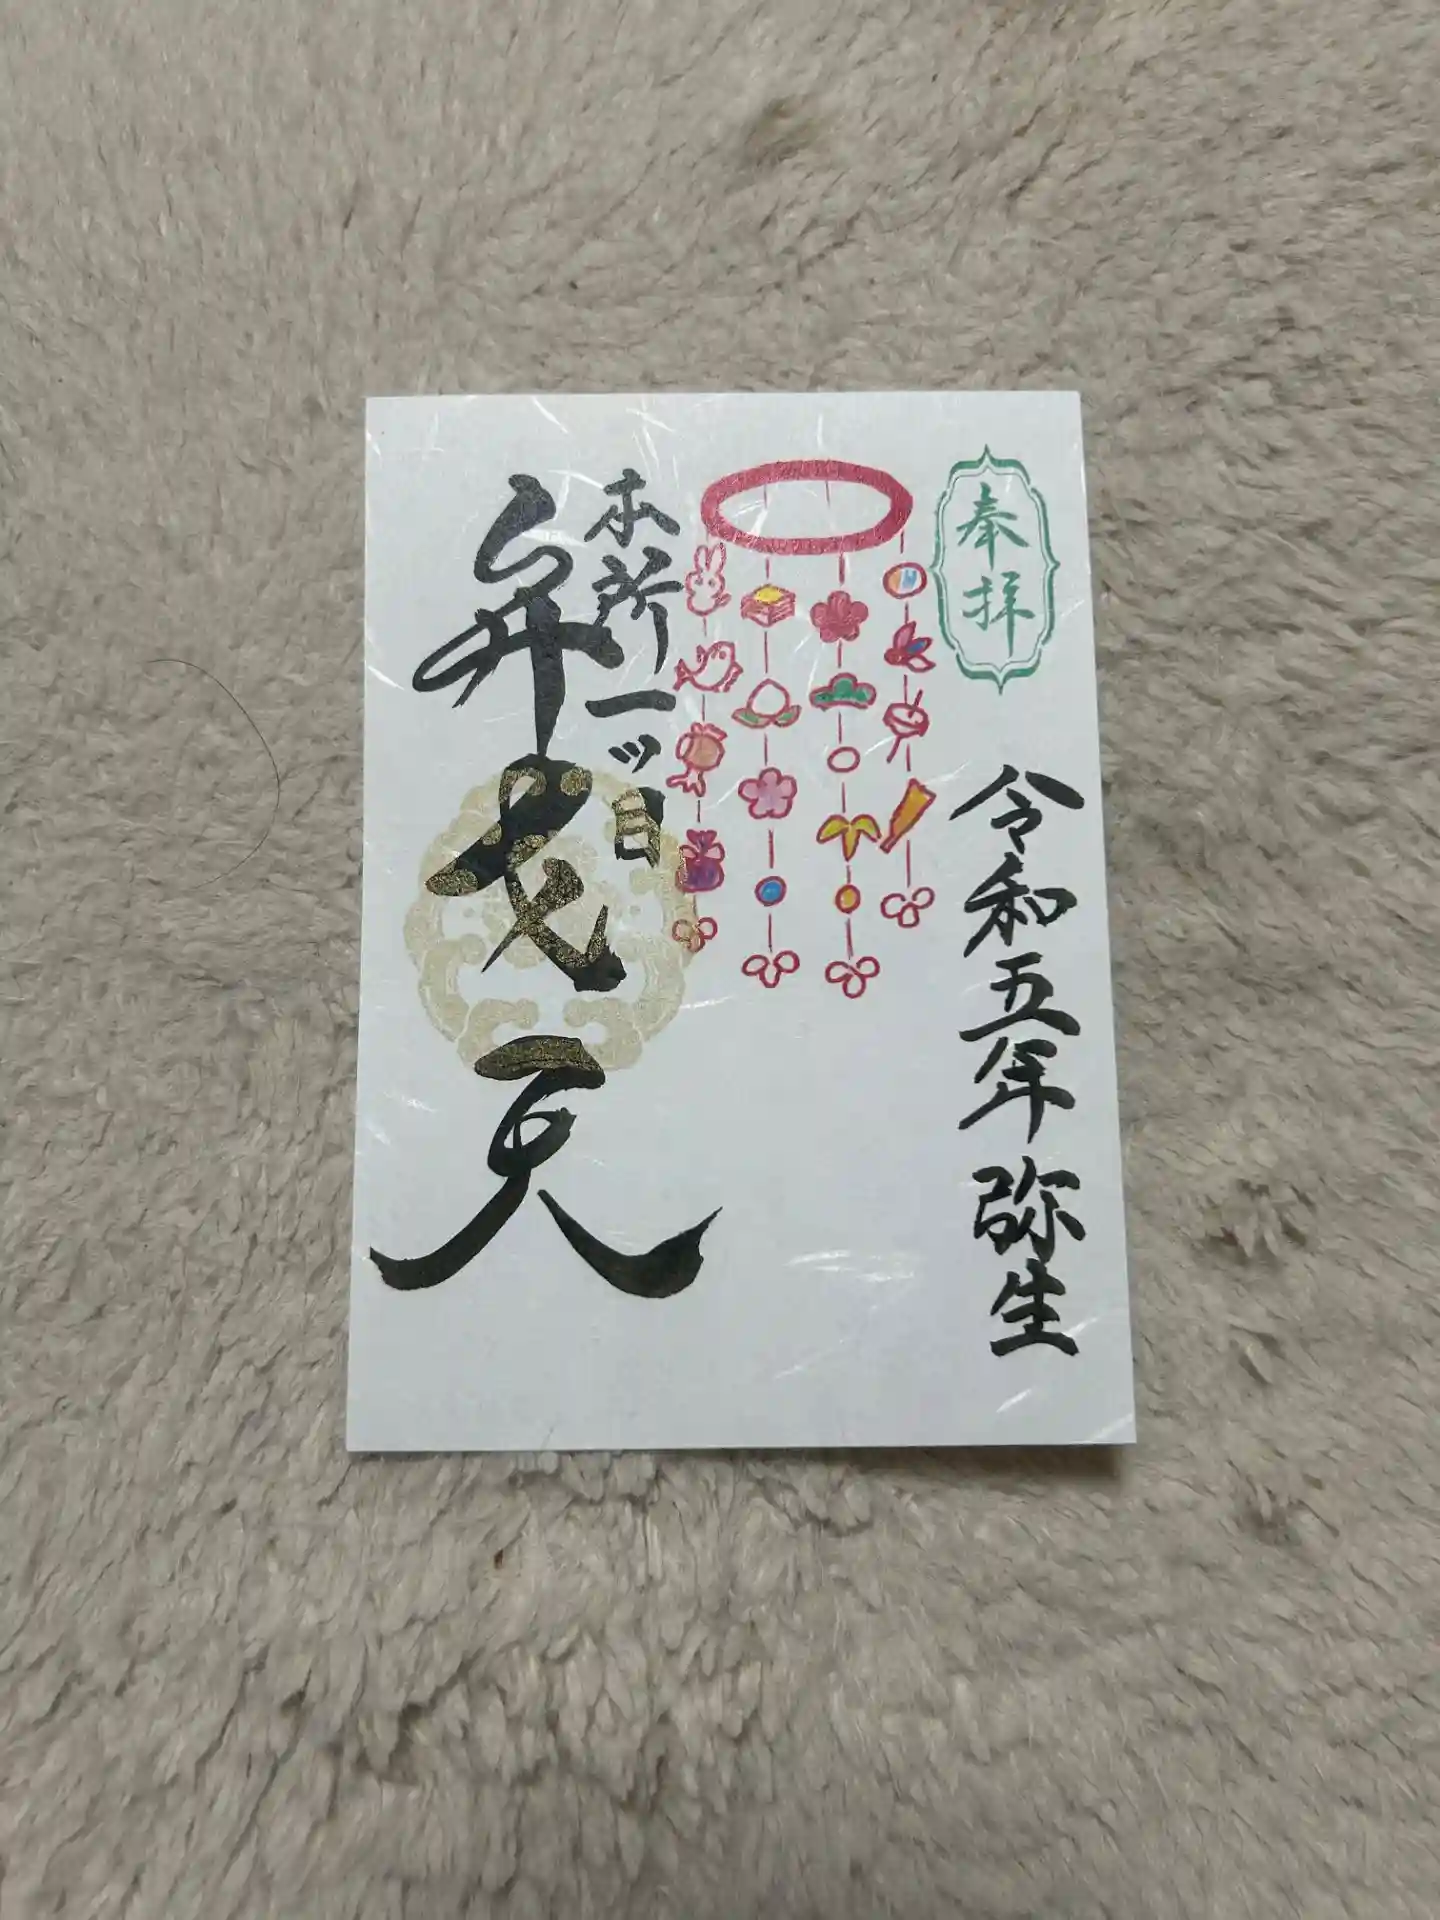 奉拝
令和五年弥生
本所一ッ目
弁天